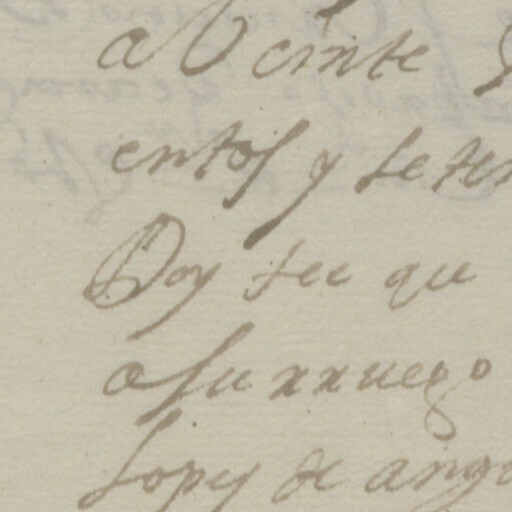 a Veinte y
entos y seten
Doy fee que
a su rruego
Lopez de ango